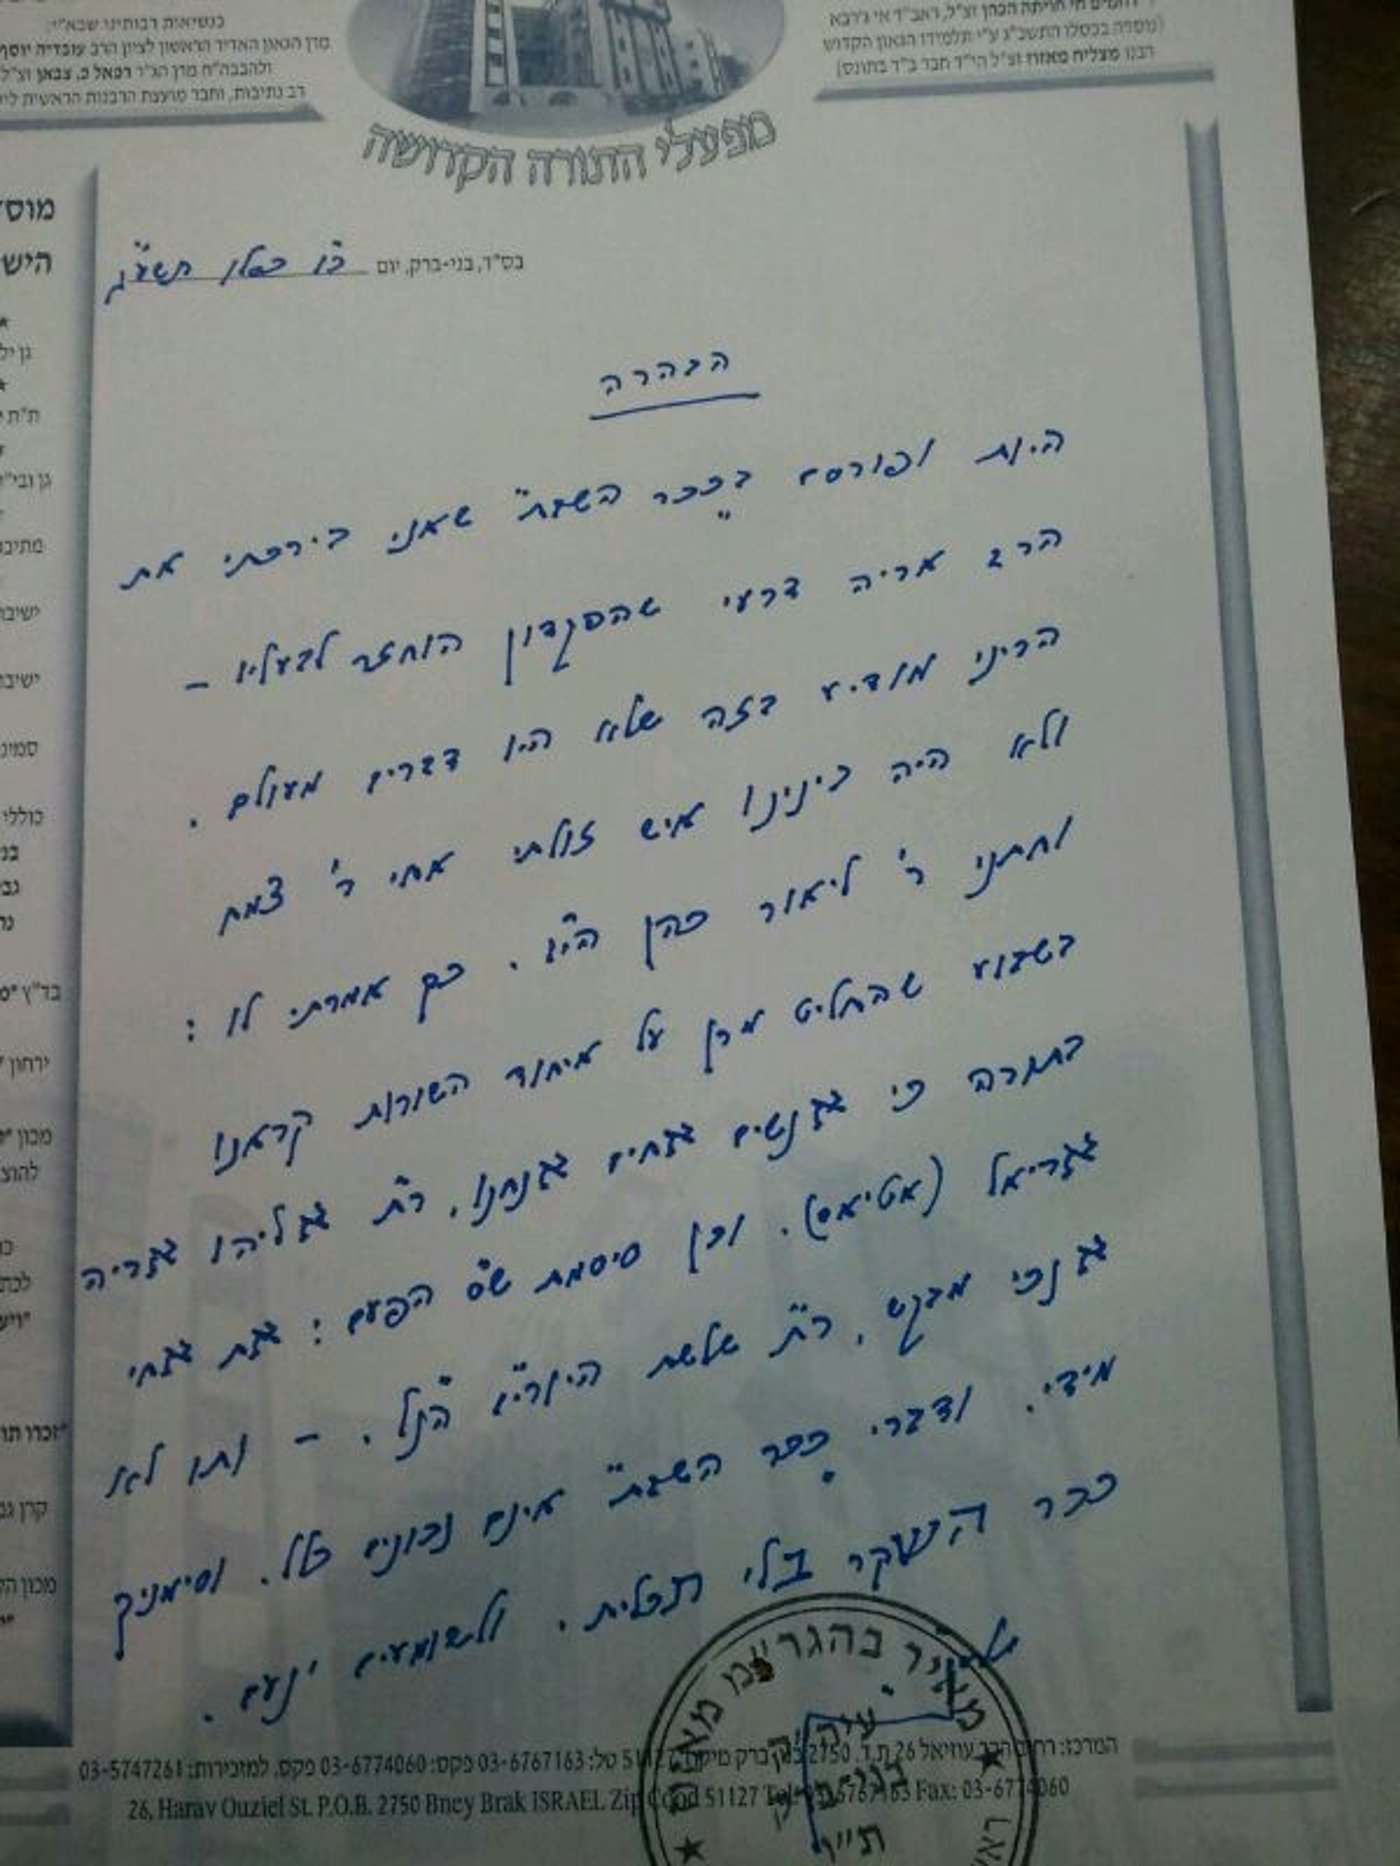 כנשיאות רבותינו שבא"י:
מרן הגאון האדיר הראשון לציון הרב עובדיה יוסף
ולהבבה"ח מרן הג"ר רפאל כ. צבאן זצ"ל
רב נתיבות, וחבר מועצת הרבנות הראשית
זצ"ל, ראב"ד אי ג'רבא
(נוסדה בכסלו התשכ"ג ע"י תלמידו הגאון הקדוש
רבנו מצליח מאזוז זצ"ל הי"ד חבר ב"ד בתונס)
מפעלי התורה הקדושה
בס"ד, בני-ברק, יום כ"ו כסלו תשע"ג
הבהרה
היות ופורסם "בככר השבת" שאני בירכתי את
הרב אריה דרעי שהפקדון הוחזר לבעליו –
הריני מודיע בזה שלא היו דברים מעולם.
ולא היה בינינו איש זולתי אחי ר' צמח
וחתני ר' ליאור כהן הי"ו. כך אמרתי לו:
בשבוע שהחליט מרן על איחוד השורות קראנו
בתורה כי אנשים אחים אנחנו, ר"ת אליהו אריה
אריאל (אטיאס). וכן סיסמת ש"ס הפעם: את אחי
אנכי מבקש, ר"ת שלשת היורי"א הנ"ל. – ותו לא
מידי. ודברי "ככר השבת" אינם נכונים כלל. וסימניך
ככר השקר בלי תכלית. ולשומעים ינעם.
המרכז: רחוב הרב עוזיאל 26 ת.ד. 2750 בני ברק מיקוד 51127 טל: 03-6767163 פקס: 03-6774060 פקס. למזכירות: 03-5747261
26, Harav Ouziel St. P.O.B. 2750 Bney Brak ISRAEL Zip Cood 51127 Tel: 03-6767163 Fax: 03-6774060